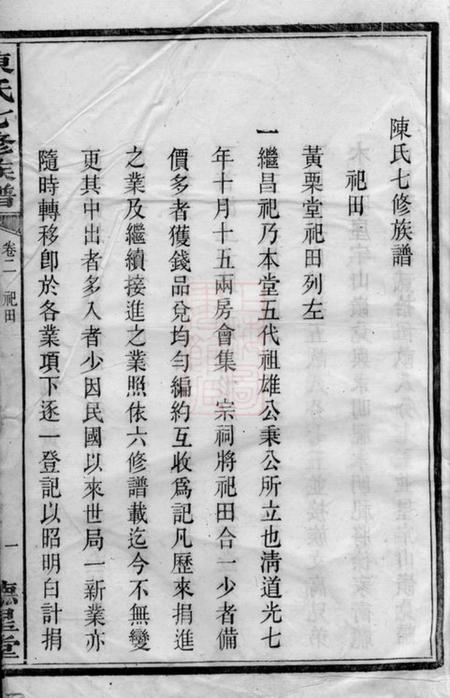 陳氏七修族譜
祀田
黃栗堂祀田列左
一繼昌祀乃本堂五代祖雄公秉公所立也清道光七
年十月十五兩房會集 宗祠將祀田合一少者備
價多者獲錢品兌均勻編約互收爲記凡歷來捐進
之業及繼續接進之業照依六修譜載迄今不無變
更其中出者多入者少因民國以來世局一新業亦
隨時轉移卽於各業項下逐一登記以昭明白計捐
陳氏七修族譜
卷二 祀田
一
聚星堂